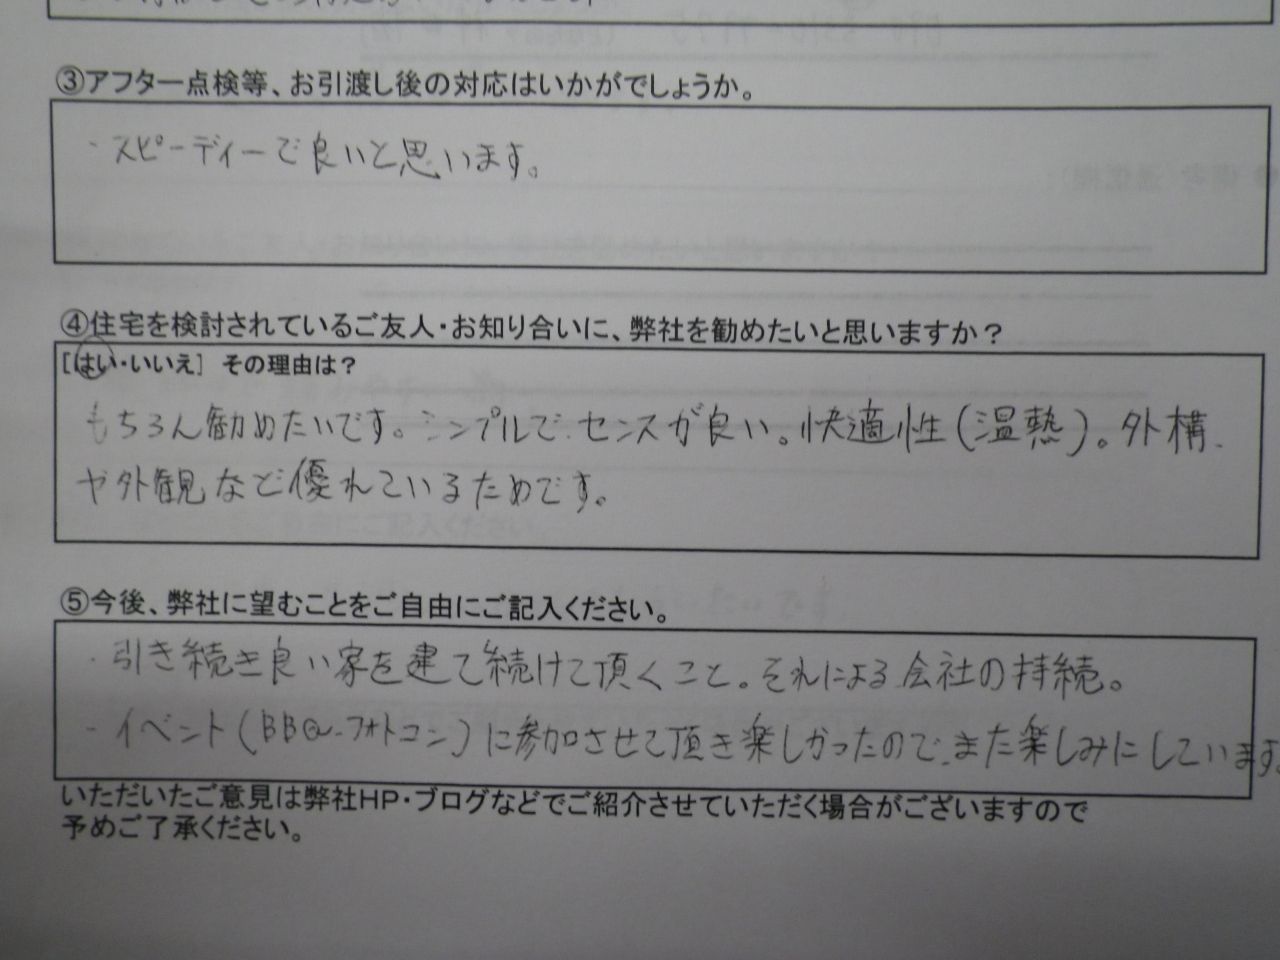 ③アフター点検等、お引渡し後の対応はいかがでしょうか。
・スピーディーで良いと思います。
④住宅を検討されているご友人・お知り合いに、弊社を勧めたいと思いますか？
[はい・いいえ] その理由は？
もちろん勧めたいです。シンプルで、センスが良い。快適性(温熱)。外構、
や外観など優れているためです。
⑤今後、弊社に望むことをご自由にご記入ください。
・引き続き良い家を建て続けて頂くこと。それによる会社の持続。
・イベント(BBQ、フォトコン)に参加させて頂き楽しかったので、また楽しみにしています。
いただいたご意見は弊社HP・ブログなどでご紹介させていただく場合がございますので
予めご了承ください。